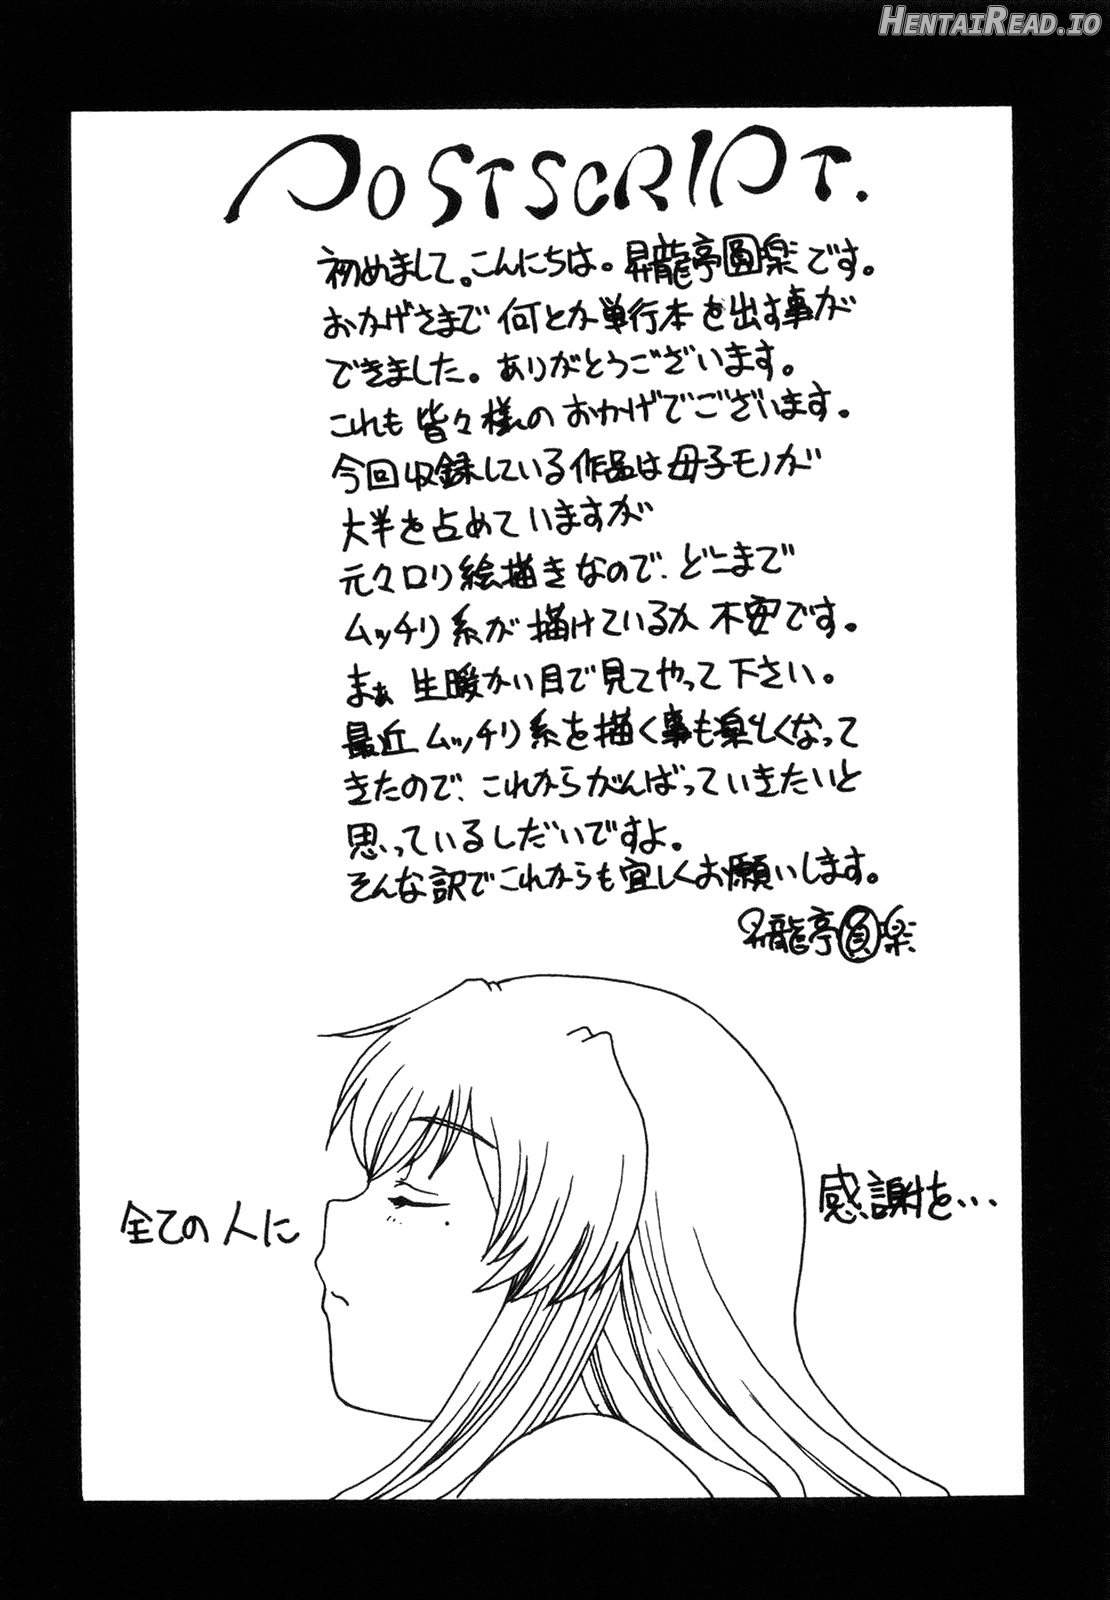 HENTAIREAD.IO
POSTSCRIPT.
初めまして。こんにちは。昇龍亭圓楽です。
おかげさまで何とか単行本を出す事が
できました。ありがとうございます。
これも皆々様のおかげでございます。
今回収録している作品は母子モノが
大半を占めていますが
元々ロリ絵描きなので、どこまで
ムッチリ系が描けているか不安です。
まぁ生暖かい目で見てやって下さい。
最近ムッチリ系を描く事も楽しくなって
きたので、これからがんばっていきたいと
思っているしだいですよ。
そんな訳でこれからも宜しくお願いします。
昇龍亭圓楽
全ての人に
感謝を・・・